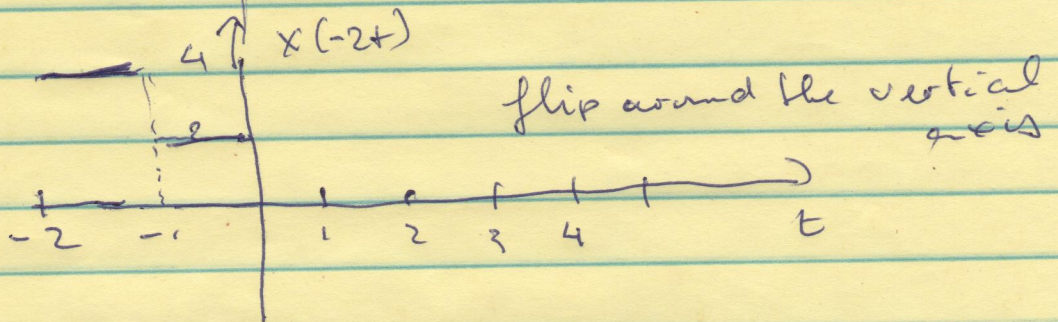 4 x(-2t)
flip around the vertical
axis
2
-2 -1 1 2 3 4 t